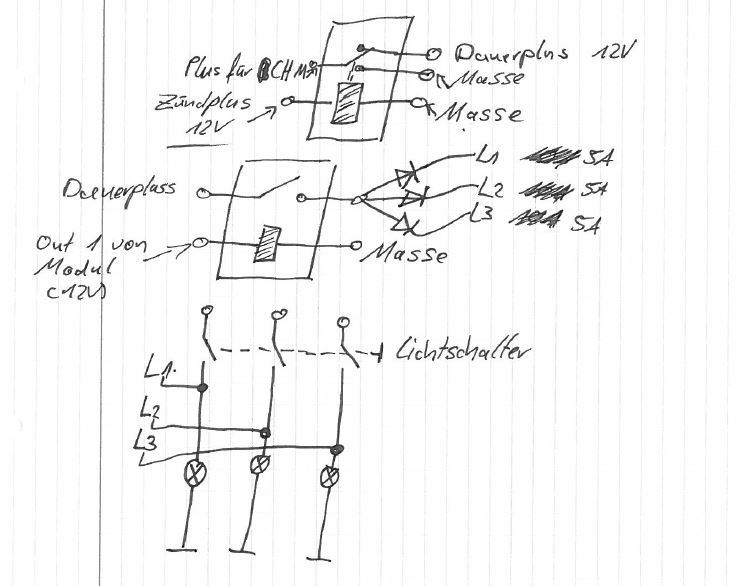 Dauerplus 12V
Plus für CHM
Masse
Zündplus
12V
Masse
L1 5A
Dauerplass
L2 5A
L3 5A
Out 1 von
Modul
(12V)
Masse
Lichtschalter
L1.
L2
L3